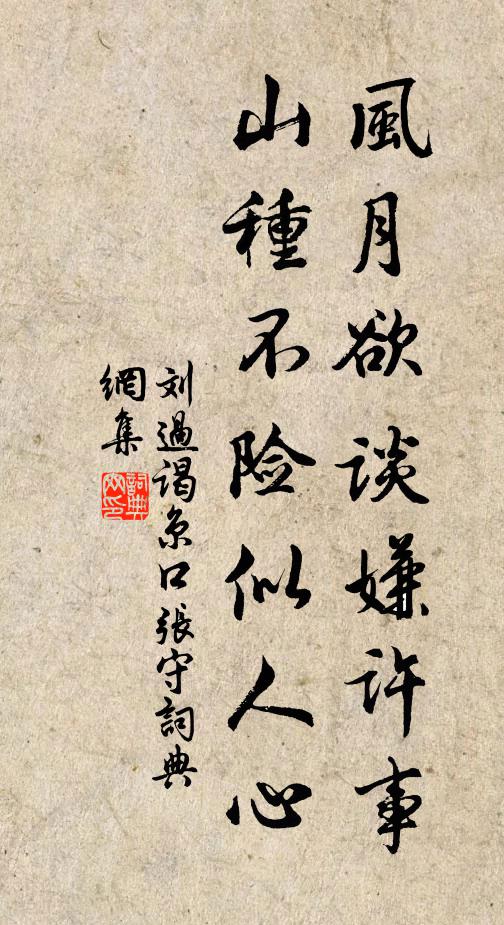 風月欲談嫌許事
山種不险似人心
刘過谒京口張守詞典
網集
詞典網印